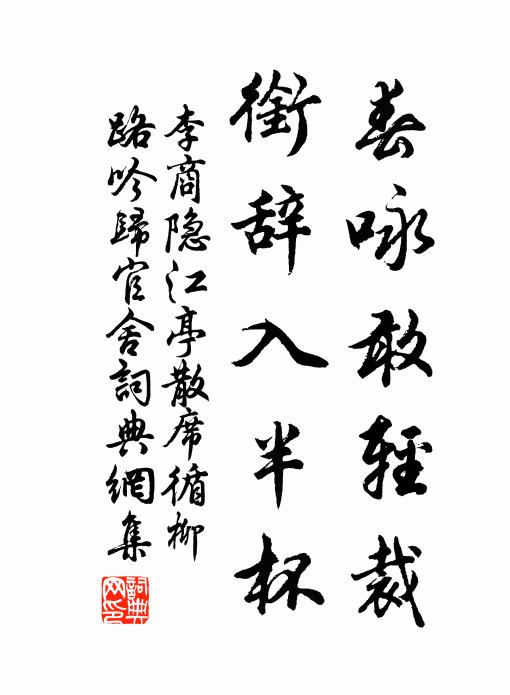 春咏敢輕裁
銜辞入半杯
李商隐江亭散席循柳
路吟歸官舍詞典網集
詞典网印